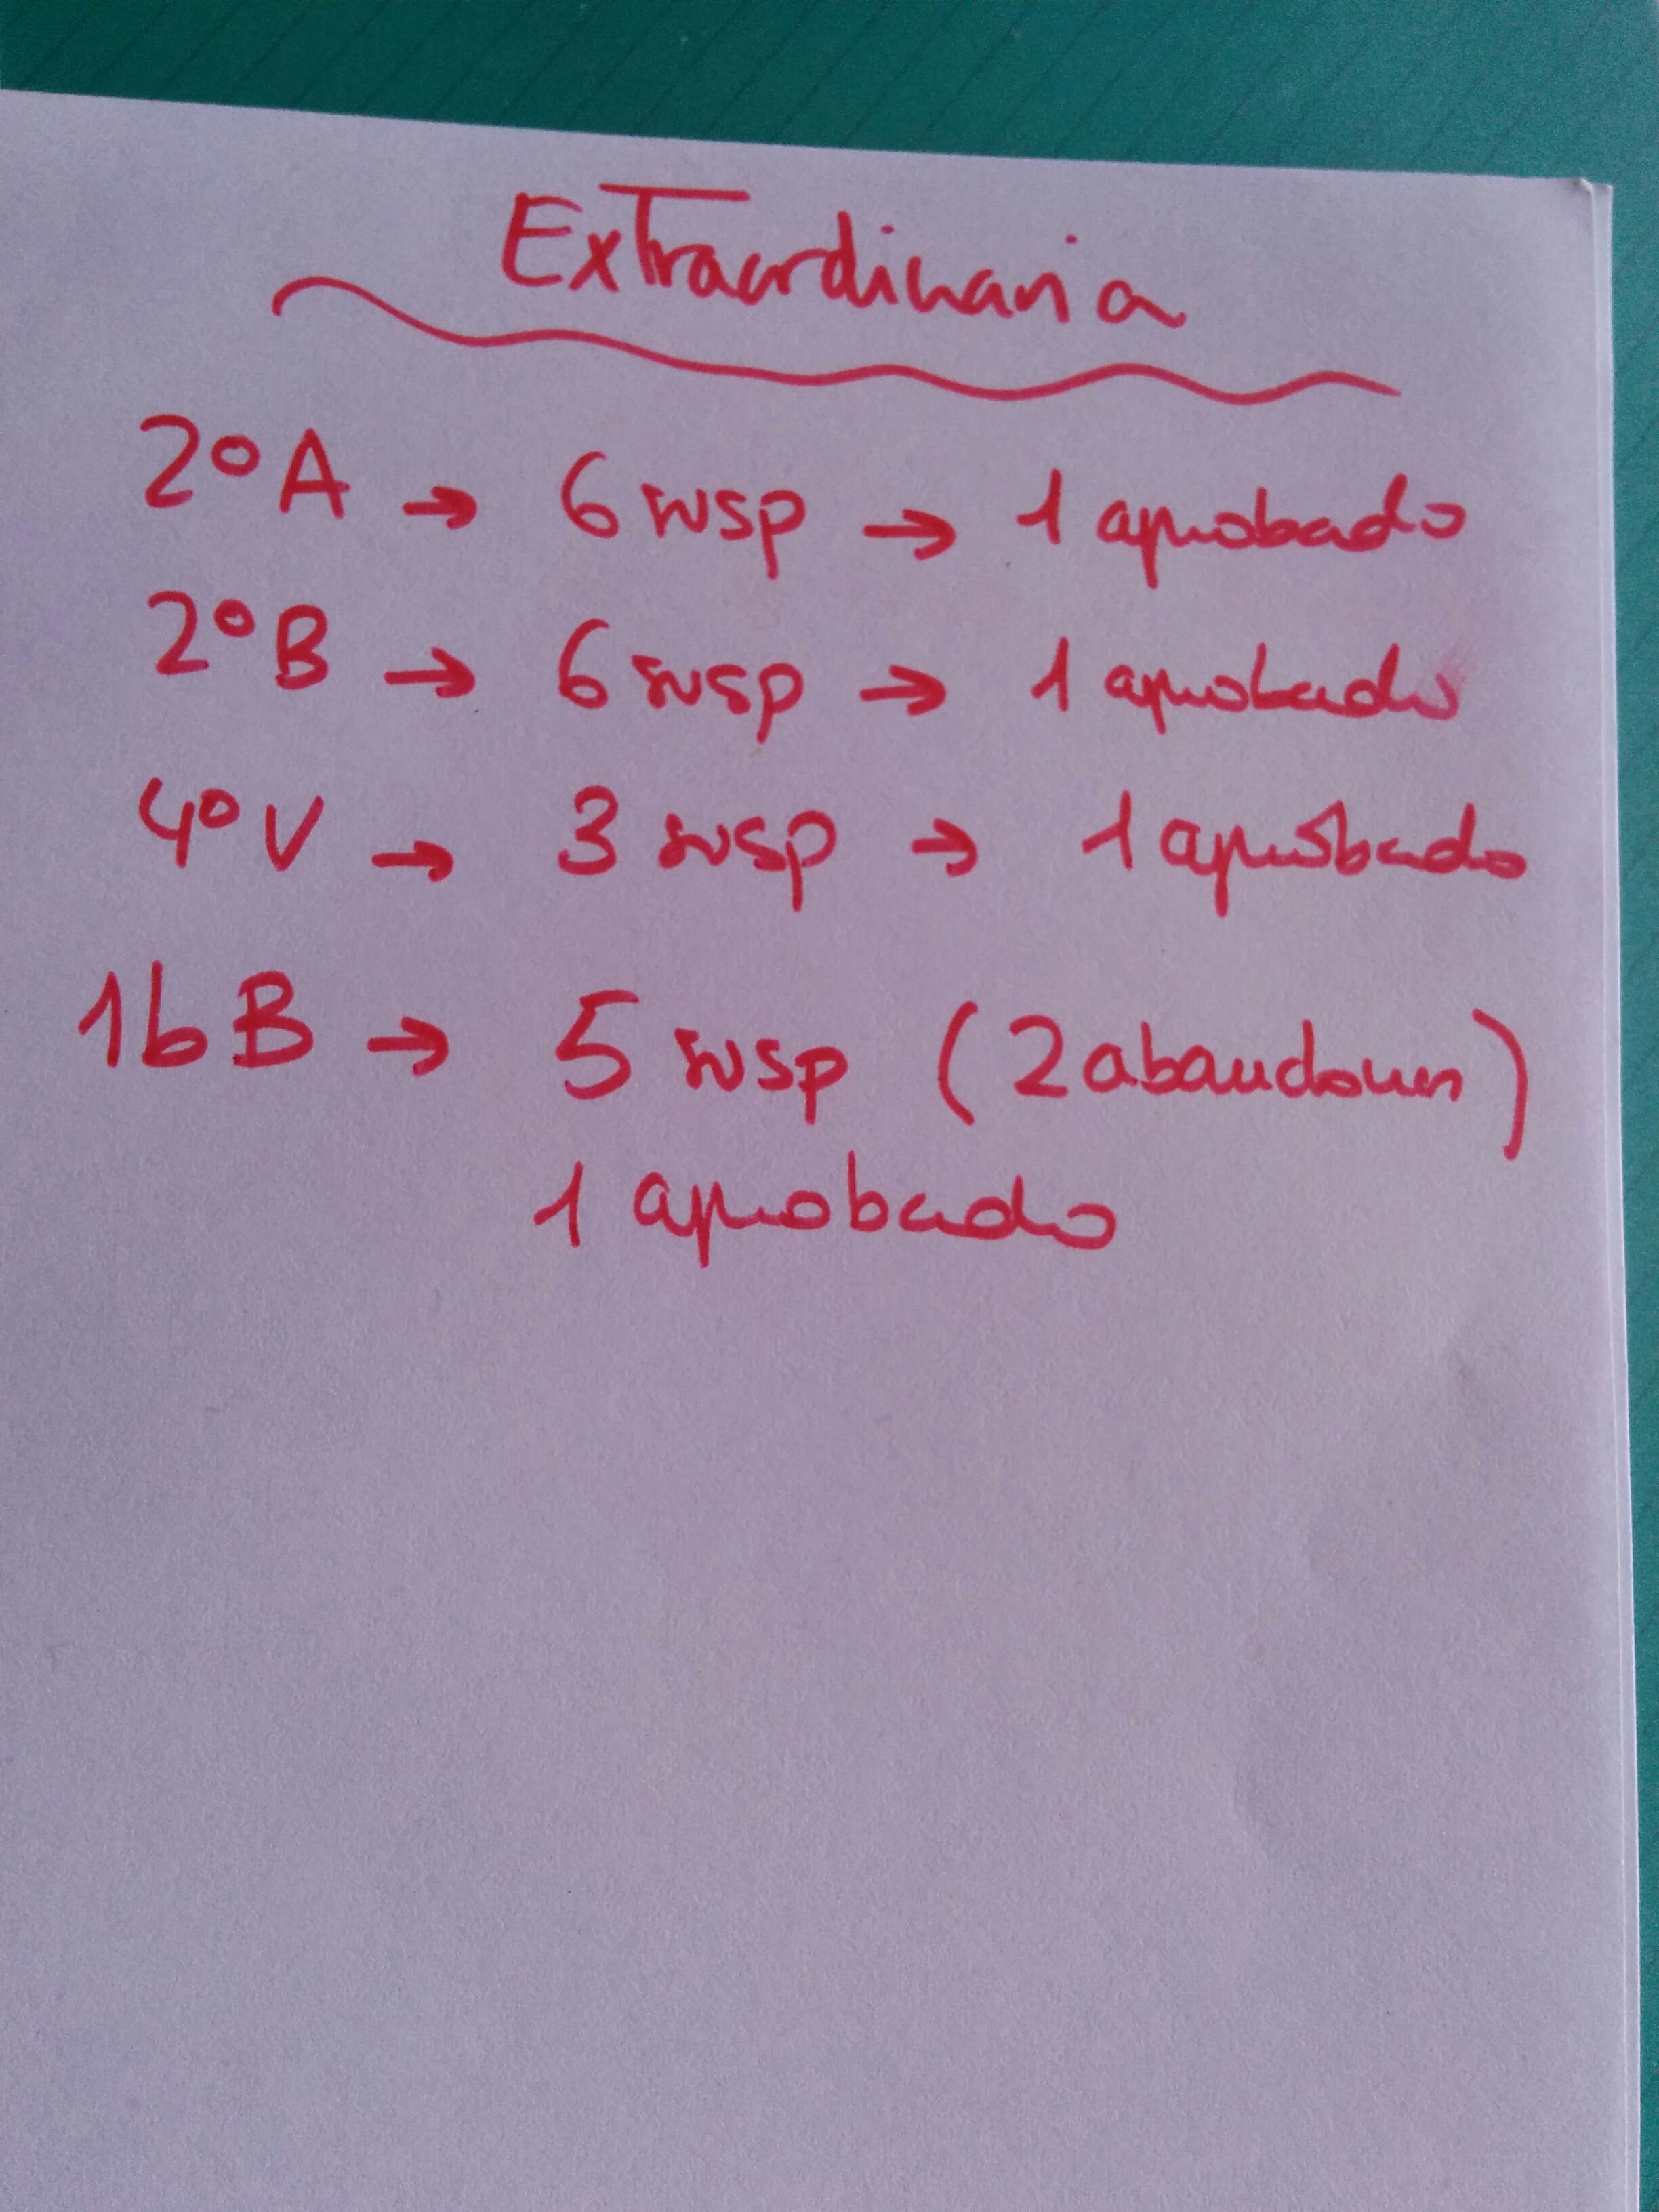 Extraordinaria
2º A → 6 susp → 1 aprobado
2º B → 6 susp → 1 aprobado
4º V → 3 susp → 1 aprobado
1b B → 5 susp (2 abandonos)
1 aprobado